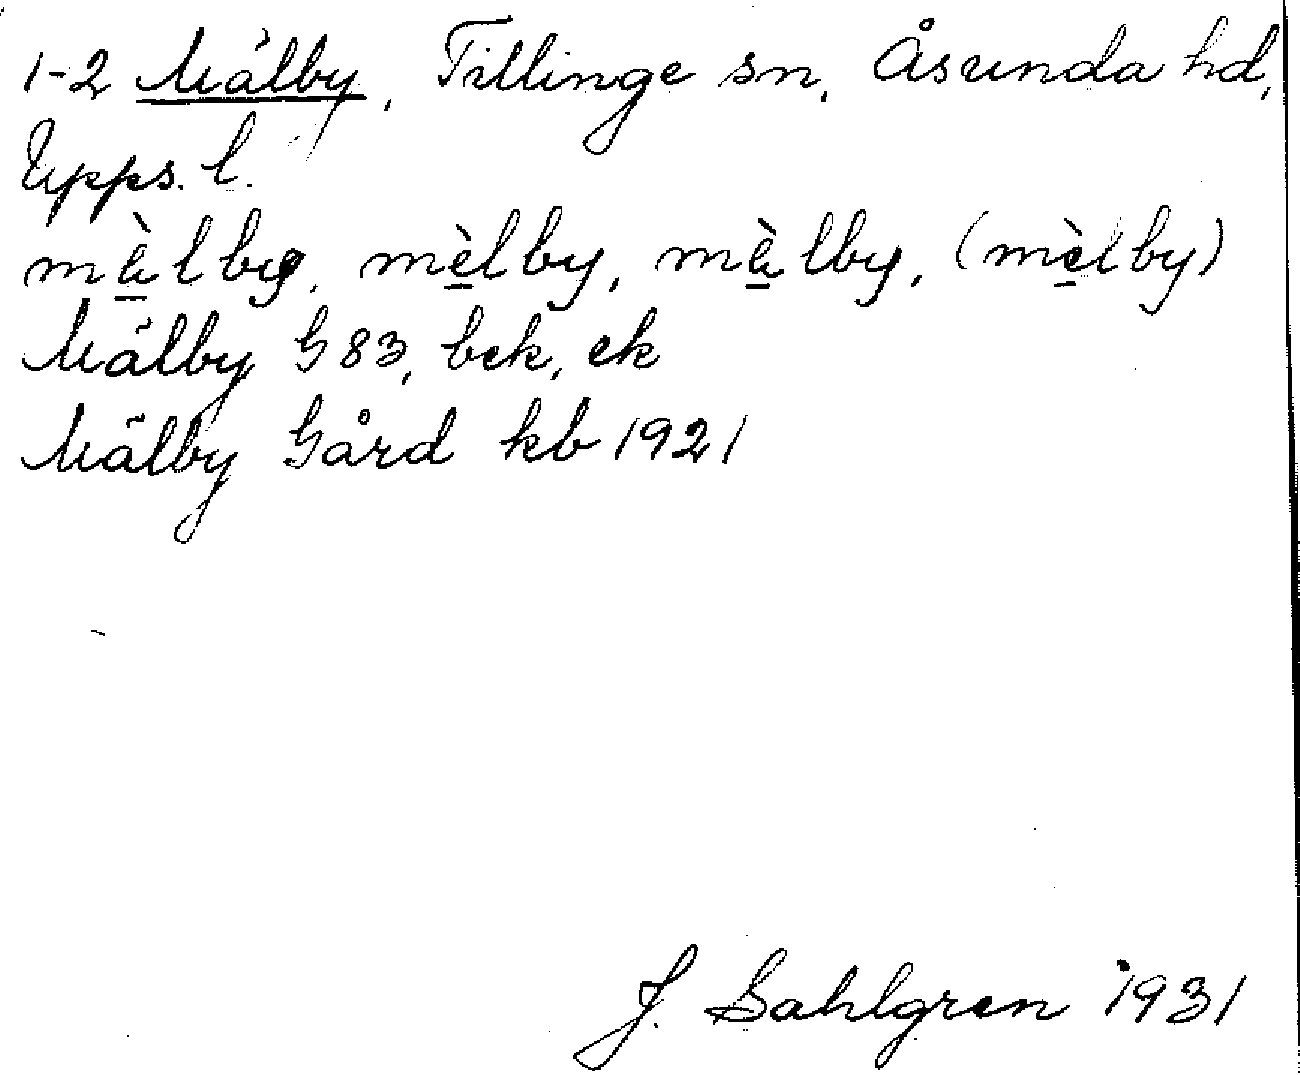 1-2 Mälby, Tillinge sn, Åsunda hd,
Upps. l.
mä̀lby, mèlby, mä̀lby, (mèlby)
Mälby G 83, bek, ek
Mälby Gård kb 1921
J. Sahlgren 1931